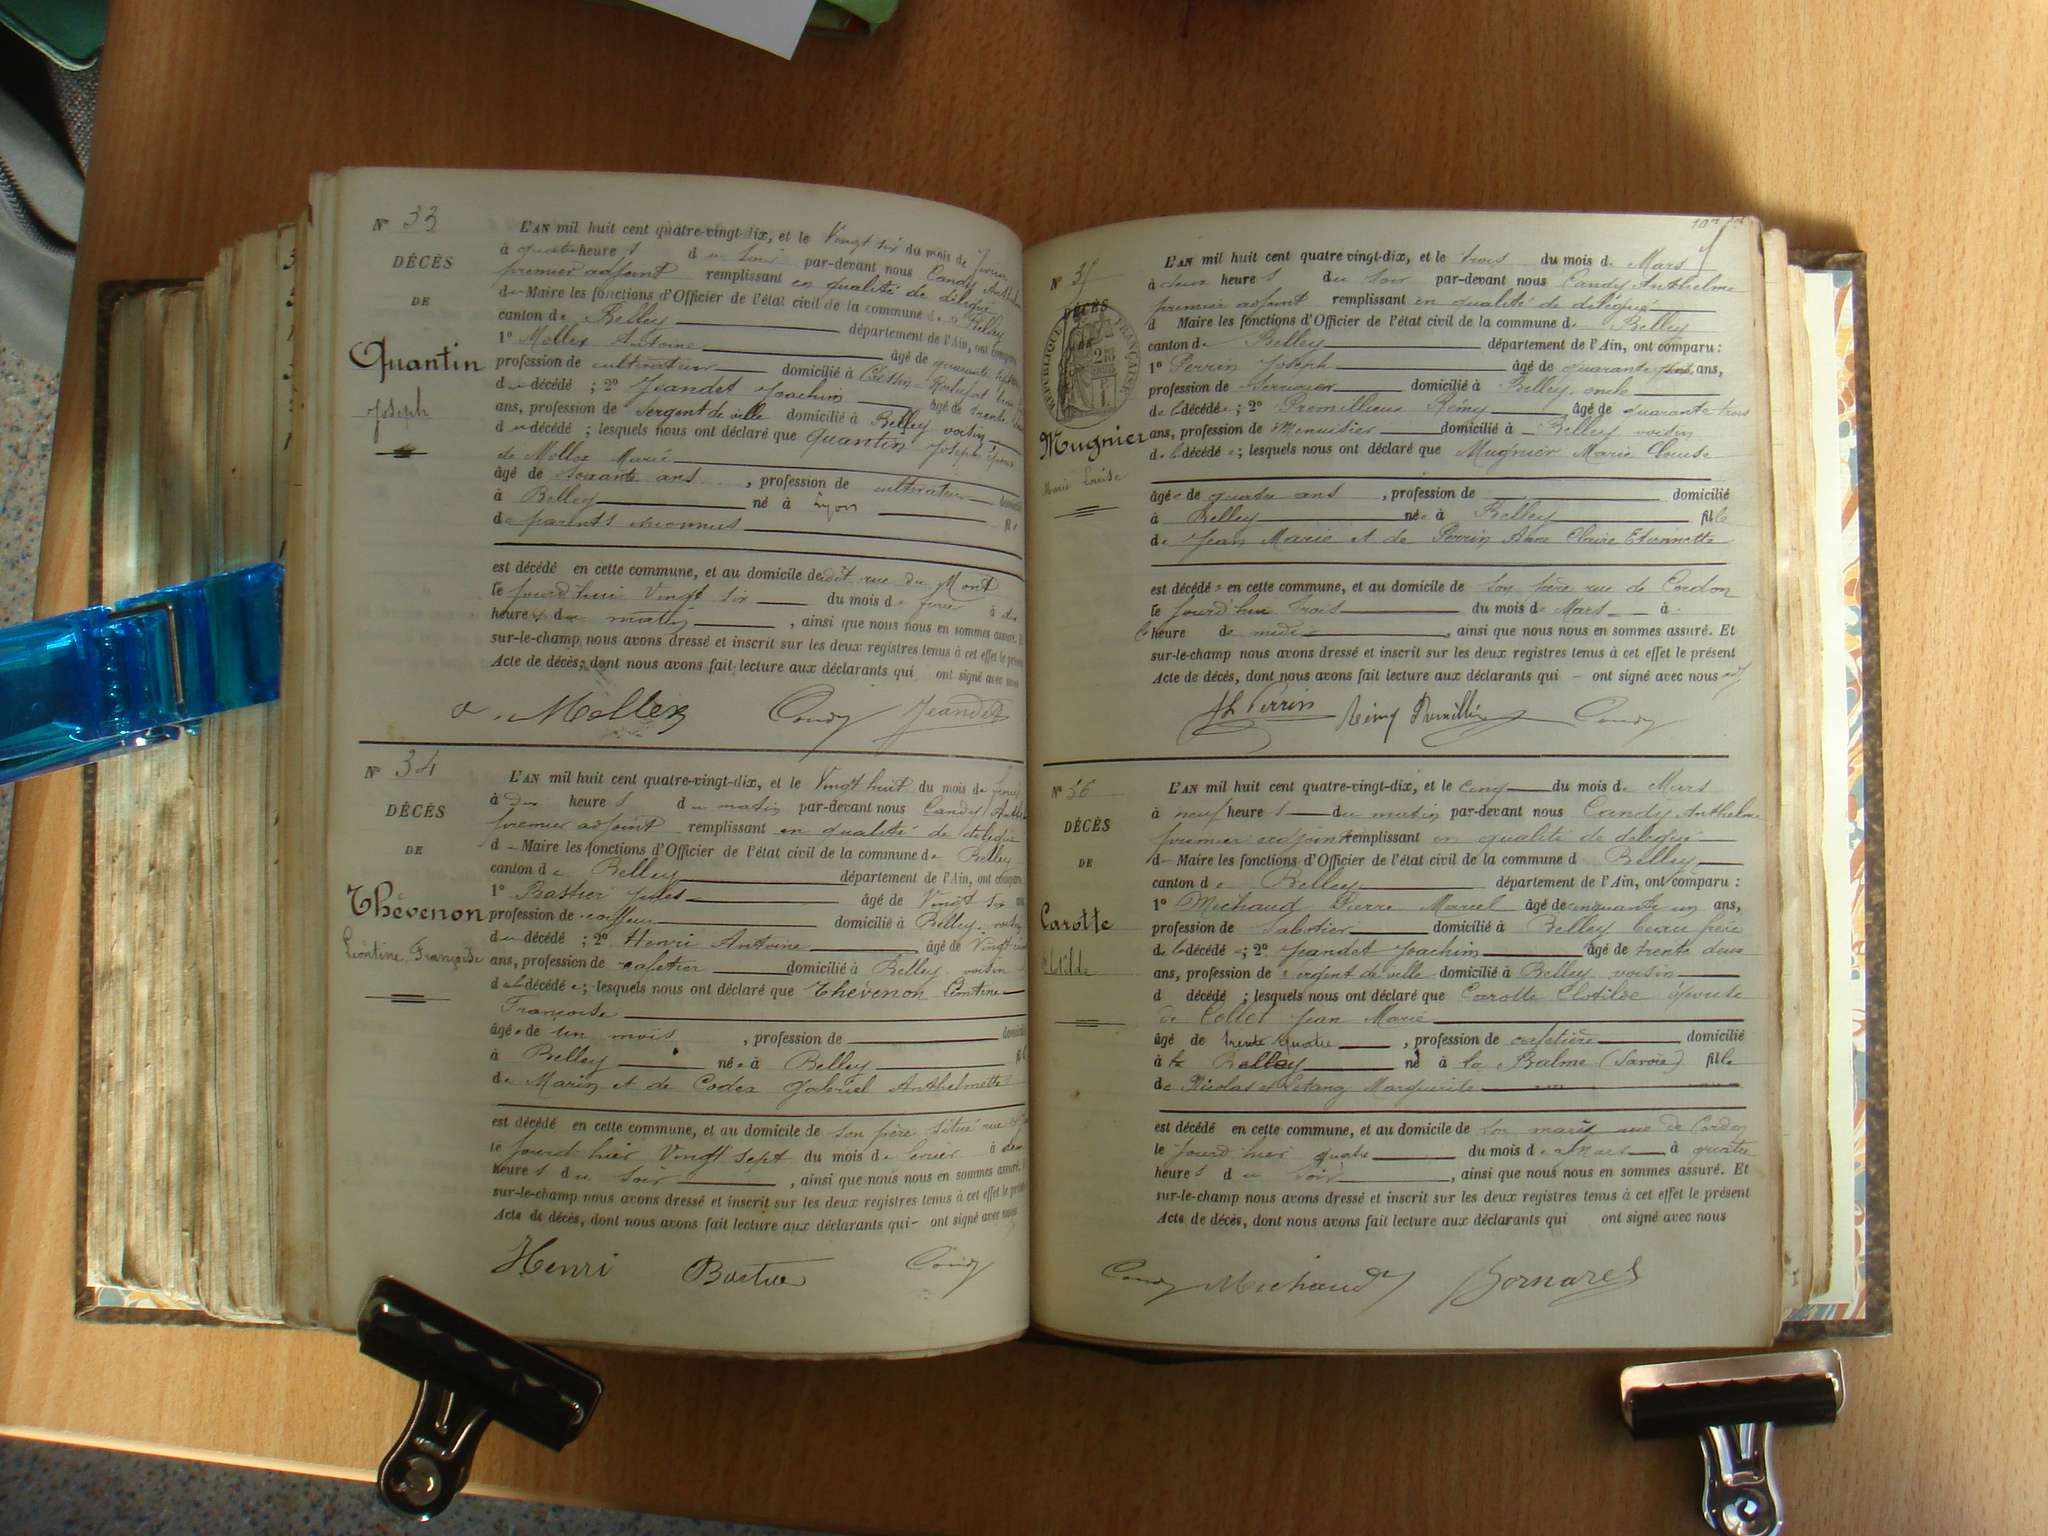 N° 33
DÉCÈS
DE
Quantin
Joseph
L'AN mil huit cent quatre-vingt-dix, et le Vingt six du mois de
à quatre heures du soir par-devant nous Candy
premier adjoint remplissant en qualité de délégué
du Maire les fonctions d'Officier de l'état civil de la commune de Belley
canton de Belley département de l'Ain, ont comparu
1° Mollex Antoine âgé de quarante
profession de cultivateur domicilié à
du décédé ; 2° Jeandet Joachim âgé de trente
ans, profession de Sergent de ville domicilié à Belley voisin
du décédé ; lesquels nous ont déclaré que Quantin Joseph époux
de Mollex Marie
âgé de soixante ans , profession de cultivateur domicilié
à Belley né à Lyon fils
de parents inconnus
est décédé en cette commune, et au domicile de rue du Mont
le jourd'hui Vingt six du mois de à
heures du matin , ainsi que nous nous en sommes assuré. Et
sur-le-champ nous avons dressé et inscrit sur les deux registres tenus à cet effet le présent
Acte de décès, dont nous avons fait lecture aux déclarants qui ont signé avec nous
a. Mollex Candy Jeandet
N° 34
DÉCÈS
DE
Thévenon
Léontine Françoise
L'AN mil huit cent quatre-vingt-dix, et le Vingt huit du mois de
à heures du matin par-devant nous Candy
premier adjoint remplissant en qualité de délégué
d Maire les fonctions d'Officier de l'état civil de la commune de Belley
canton de Belley département de l'Ain, ont comparu
1° Jules âgé de Vingt six ans
profession de coiffeur domicilié à Belley voisin
du décédé ; 2° Henri Antoine âgé de Vingt
ans, profession de cafetier domicilié à Belley voisin
de la décédée ; lesquels nous ont déclaré que Thévenon Léontine
Françoise
âgée de un mois , profession de domicilié
à Belley née à Belley
de Marin et de Codex Gabriel Anthelmette
est décédé en cette commune, et au domicile de son père situé rue
le jourd'hier Vingt sept du mois de à
heures du soir , ainsi que nous nous en sommes assuré. Et
sur-le-champ nous avons dressé et inscrit sur les deux registres tenus à cet effet le présent
Acte de décès, dont nous avons fait lecture aux déclarants qui ont signé avec nous
Henri Candy
N° 35
DÉCÈS
RÉPUBLIQUE FRANÇAISE
Mugnier
Marie Louise
L'AN mil huit cent quatre-vingt-dix, et le trois du mois de Mars
à deux heures du soir par-devant nous Candy Anthelme
premier adjoint remplissant en qualité de délégué
d Maire les fonctions d'Officier de l'état civil de la commune de Belley
canton de Belley département de l'Ain, ont comparu :
1° Perrin Joseph âgé de quarante ans,
profession de serrurier domicilié à Belley, oncle
de la décédée ; 2° Premillieux Rémy âgé de quarante trois
ans, profession de Menuisier domicilié à Belley voisin
de la décédée ; lesquels nous ont déclaré que Mugnier Marie Louise
âgée de quatre ans , profession de domicilié
à Belley née à Belley fille
de Jean Marie et de Perrin Anne Claire Etiennette
est décédée en cette commune, et au domicile de son père rue de Cordon
le jourd'hui trois du mois de Mars à
heure de midi , ainsi que nous nous en sommes assuré. Et
sur-le-champ nous avons dressé et inscrit sur les deux registres tenus à cet effet le présent
Acte de décès, dont nous avons fait lecture aux déclarants qui ont signé avec nous
Perrin Rémy Candy
N° 36
DÉCÈS
DE
Carotte
Clotilde
L'AN mil huit cent quatre-vingt-dix, et le cinq du mois de Mars
à neuf heures du matin par-devant nous Candy Anthelme
premier adjoint remplissant en qualité de délégué
d Maire les fonctions d'Officier de l'état civil de la commune d Belley
canton de Belley département de l'Ain, ont comparu :
1° Michaud Pierre Marcel âgé de cinquante un ans,
profession de Sabotier domicilié à Belley beau frère
de la décédée ; 2° Jeandet Joachim âgé de trente deux
ans, profession de sergent de ville domicilié à Belley voisin
d décédé ; lesquels nous ont déclaré que Carotte Clotilde épouse
de Collet Jean Marie
âgé de trente quatre , profession de cafetière domicilié
à Belley né à la Balme (Savoie) fille
de Nicolas et Marguerite
est décédé en cette commune, et au domicile de son mari rue de Cordon
le jourd'hier quatre du mois de Mars à quatre
heures du soir , ainsi que nous nous en sommes assuré. Et
sur-le-champ nous avons dressé et inscrit sur les deux registres tenus à cet effet le présent
Acte de décès, dont nous avons fait lecture aux déclarants qui ont signé avec nous
Candy Michaud Bornarel